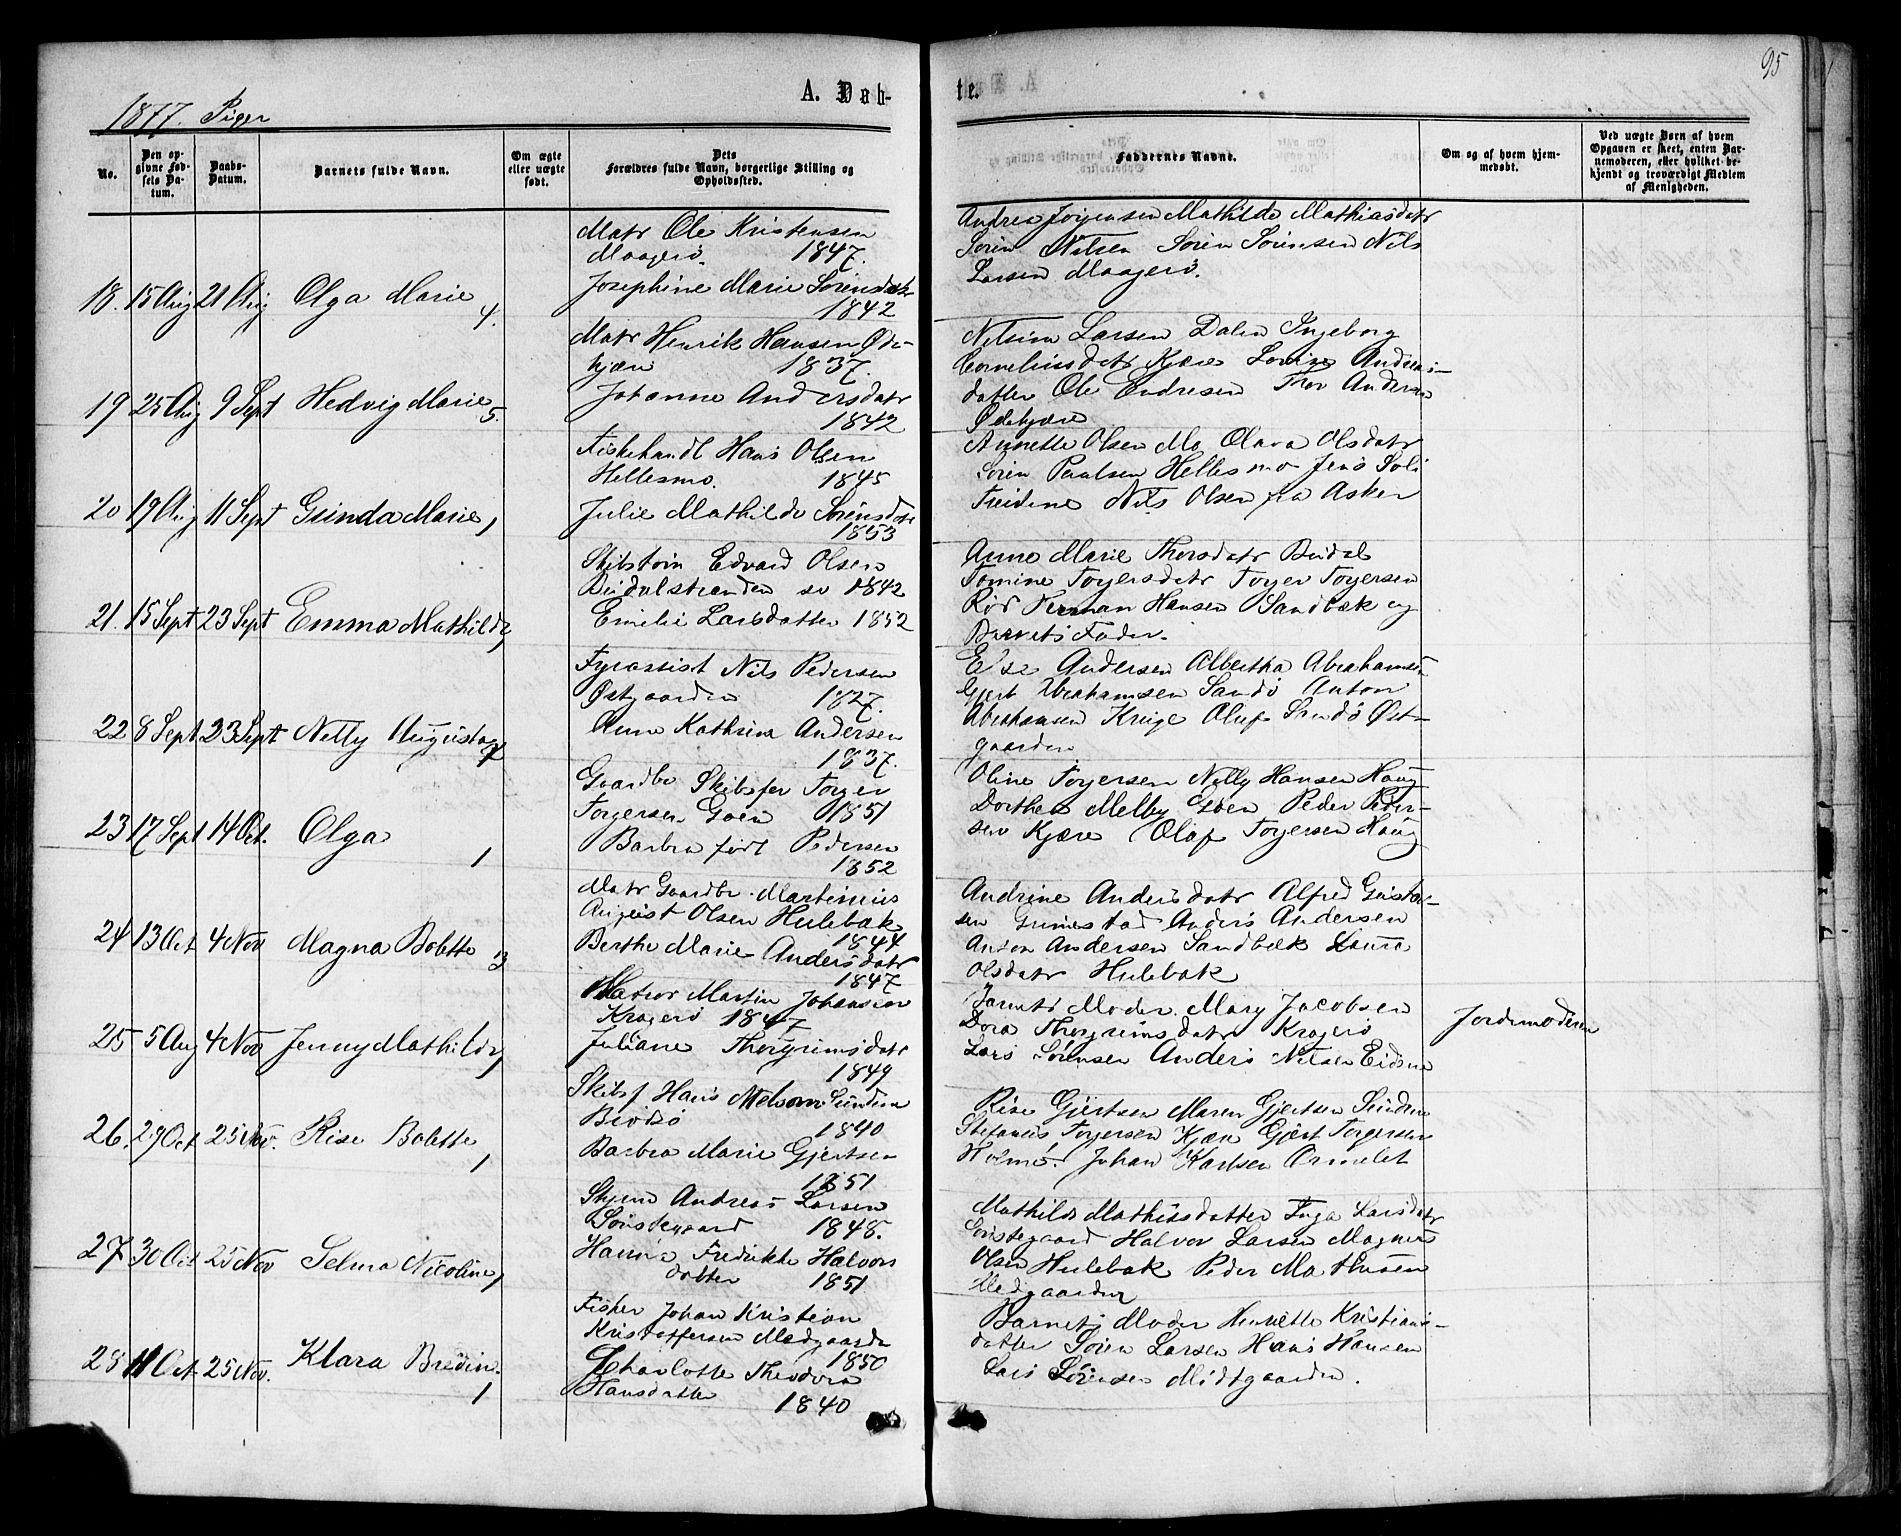 95
1877. Piger
A. Døb-
te.
No.
Den op-
givne Fød-
sels Da-
tum.
Daabs-
Datum.
Barnets fulde Navn.
Om ægte
eller uægte
født.
Dets
Forældres fulde Navn, borgerlige Stilling og
Opholdssted.
Faddernes Navne.
Om og af hvem hjem-
medøbt.
Ved uægte Børn af hvem
Opgaven er skeet, enten Bar-
nemoderen, eller hvilket be-
kjendt og troværdigt Medlem
af Menigheden.
18. 15 Aug 21 Aug Olga Marie 4.
Matr Ole Kristensen
Maagerö. 1847.
Josephine Marie Sörensdatr
1842
Andrea Jörgensen Mathilde Mathiasdatr
Sören Nilsen Sören Sörensen Nils
Larsen Maagerö.
19 25 Aug 9 Sept Hedvig Marie 5.
Matr Henrik Hansen Öde-
kjær 1837.
Johanne Andersdatr
1842
Nilsine Larsen Dalen Ingeborg
Corneliusdatr Kjære Lovise Andreas-
datter Ole Endresen Thor Andersen
Ödekjære
20 19 Aug 11 Sept Gunda Marie 1
Fiskehandl Hans Olsen
Hellesmo. 1845
Julie Mathilde Sörensdatr
1853
Annette Olsen Mo Clara Olsdatr
Sören Paulsen Hellesmo Jens Soli
Treidene Nils Olsen fra Asker
21. 15 Sept 23 Sept Emma Mathilde 1
Skibstöm Edvard Olsen
Budalstranden 1842
Emilie Larsdatter 1852
Anne Marie Thorsdatr Budal
Tomine Torgersdatr Torger Torgersen
Rör Herman Hansen Sandbæk og
Barnets Fader.
22 8 Sept 23 Sept Nelly Augusta 7
Fyrassist Nils Pedersen
Östgaarden 1827.
Anne Kathrine Andersen
1837.
Else Andersen Albertha Abrahamsen
Gjert Abrahamsen Sandö Anton
Abrahamsen Kruge Oluf Sandö Öst-
gaarden
23 17 Sept 14 Oct. Olga 1
Gaardbr Skibsför Torger
Torgersen Goen 1851
Barbra född Pedersen
1852
Oline Torgersen Nelly Hansen Haug
Dorthea Melby Goen Peder Peder-
sen Kjære Olaf Torgersen Haug
24 13 Oct 4 Nov Magna Bolette 3
Matr Gaardbr. Martinius
August Olsen Hulebak
1844
Berthe Marie Andersdatr
1847
Andrine Andersdatr Alfred Gustav-
sen Grimestad Anders Andersen
Anton Andersen Sandbæk Laura
Olsdatr Hulebak
25 5 Aug 4 Nov Jenny Mathilde 1
Matros Martin Johansen
Kragerö 1847
Juliane Thorgrimsdatr
1849
Barnets Moder Mary Jacobsen
Dora Thorgrimsdatr Kragerö
Lars Sörensen Anders Nilsen Eidene
Jordemoderen
26. 29 Oct 25 Nov. Rise Bolette 1
Skibsf Hans Melsom Sundene
Brötsö 1840
Barbra Marie Gjertsen
1851
Rise Gjertsen Maren Gjertsen Sundene
Stefanus Torgersen Kjære Gjert Torgersen
Holmö. Johan Karlsen Ormelet
27 30 Oct 25 Nov Selma Nicoline 1
Skjem Andreas Larsen
Sönstegaard 1848.
Hanna Fredrikke Halvors
datter 1851
Mathilde Mathisdatter Inga Larsdatr
Sönstegaard Halvor Larsen Magnus
Olsen Hulebak Peder Mathisen
Medgaarden
28 11 Oct 25 Nov. Klara Bredine. 1
Fisker Johan Kristian
Kristoffersen Medgaarde
1850
Charlotte Theodora
Hansdatter 1840
Barnets Moder Henriette Kristians-
datter Sören Larsen Hans Hansen
Lars Sörensen Midtgaarden.